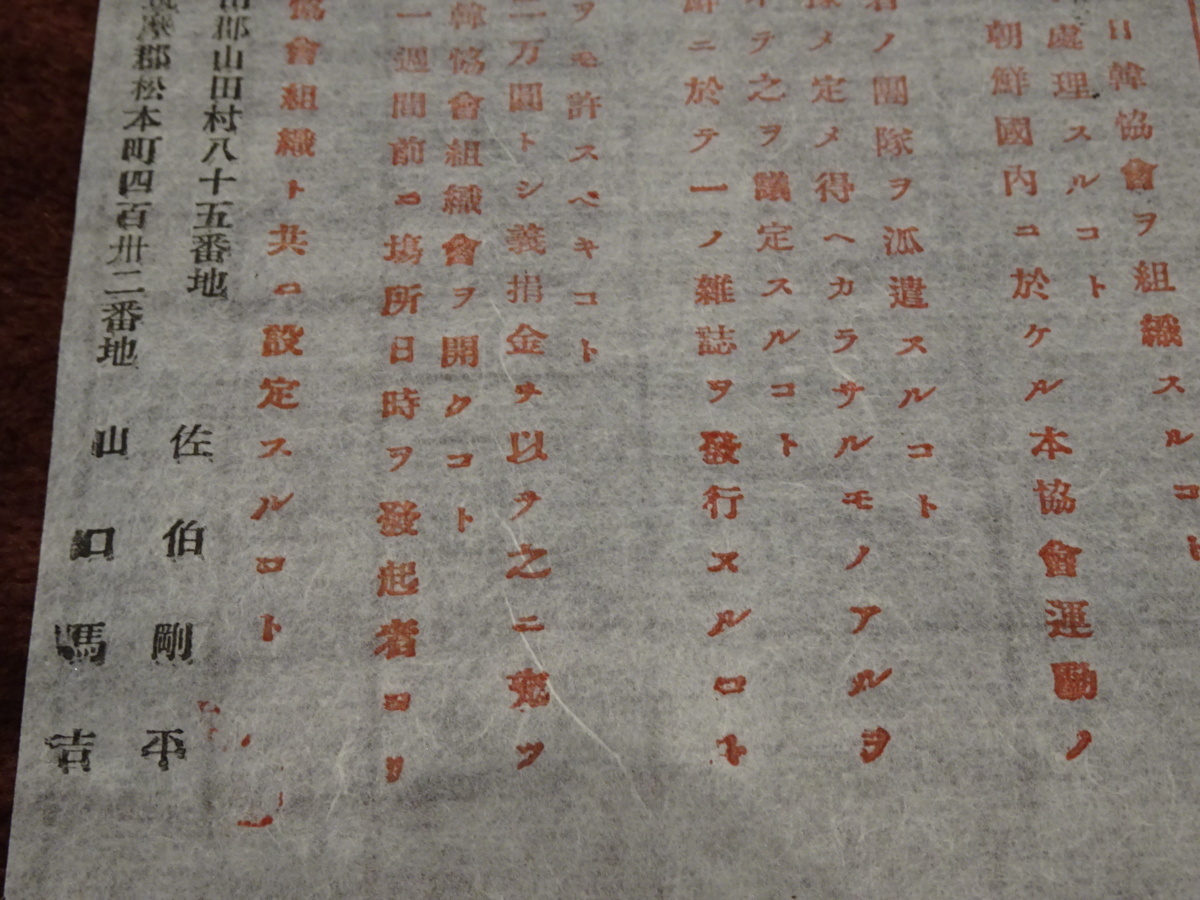 日韓協會ヲ組織スルコト
處理スルコト
朝鮮國内ニ於ケル本協會運動ノ
ノ團隊ヲ派遣スルコト
メ定メ得ヘカラサルモノアルヲ
テ之ヲ議定スルコト
鮮ニ於テ一ノ雜誌ヲ發行スルコト
ヲモ許スベキコト
二万圓トシ義捐金ヲ以テ之ニ充ツ
韓協會組織會ヲ開クコト
一週間前ニ塲所日時ヲ發起者ヨリ
協會組織ト共ニ設定スルコト
郡山田村八十五番地 佐伯剛平
摩郡松本町四百卅二番地 山口馬吉